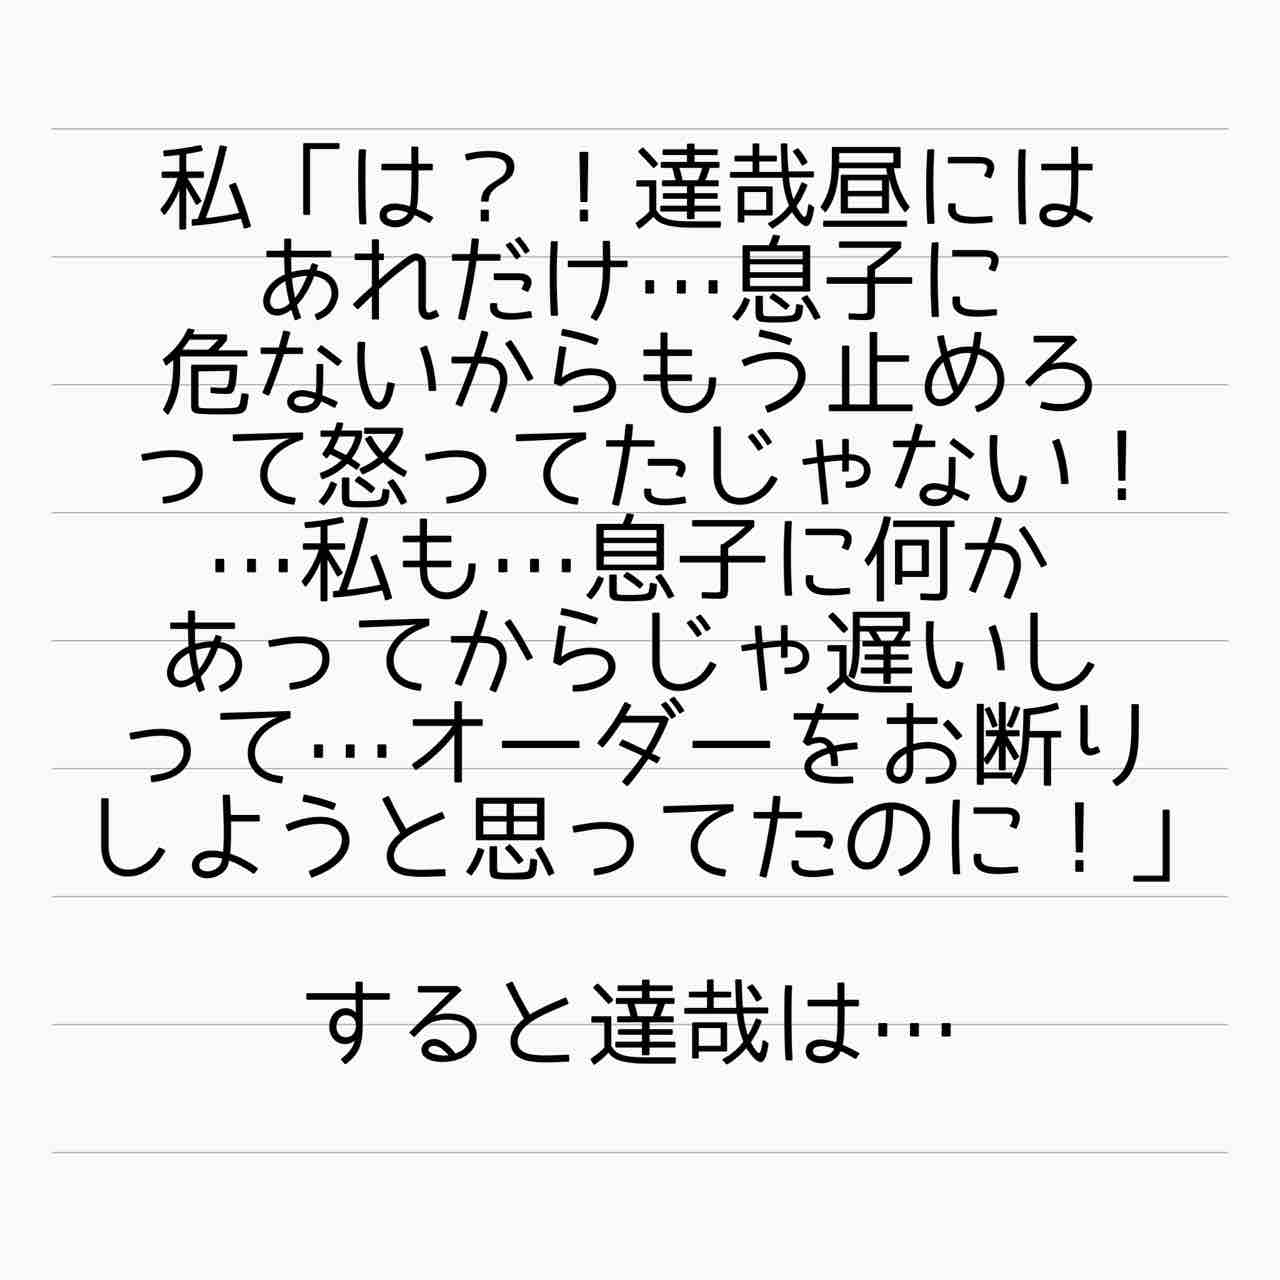 私「は？！達哉昼には
あれだけ…息子に
危ないからもう止めろ
って怒ってたじゃない！
…私も…息子に何か
あってからじゃ遅いし
って…オーダーをお断り
しようと思ってたのに！」
すると達哉は…